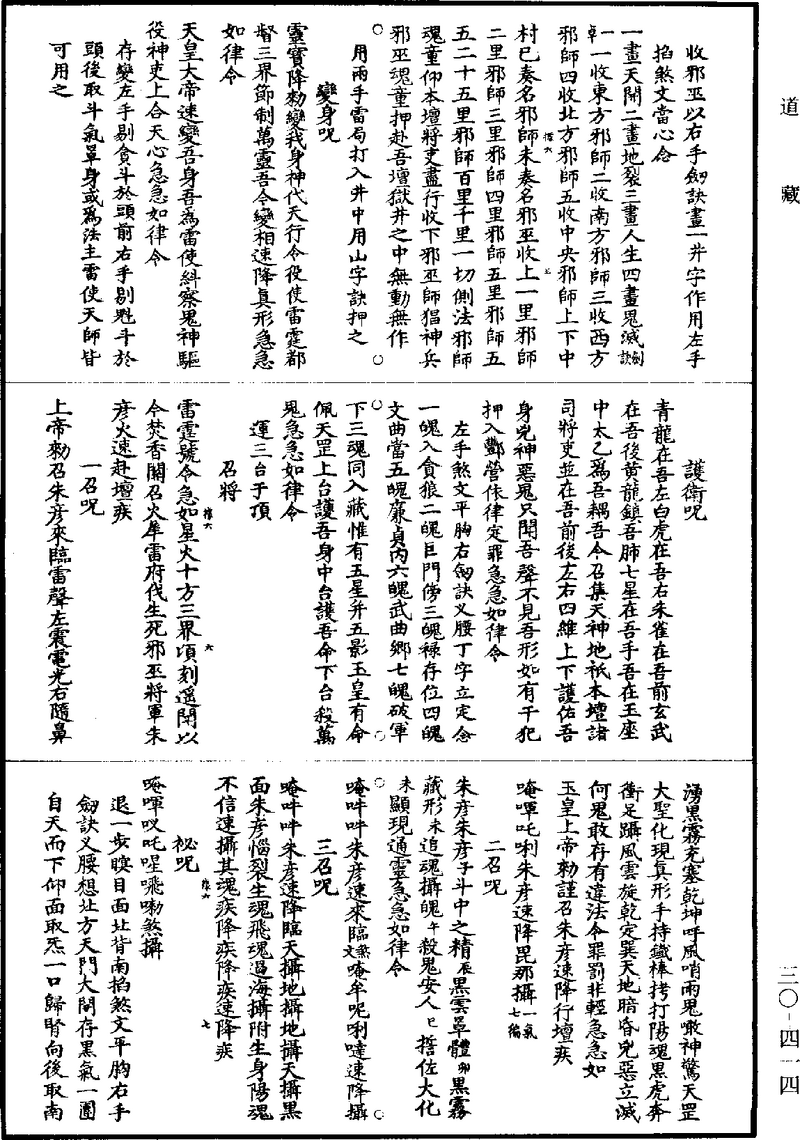 道藏
收邪巫以右手劒訣畫一井字作用左手
掐煞文當心念
一畫天開二畫地裂三畫人生四畫鬼滅
一收東方邪師二收南方邪師三收西方
邪師四收北方邪師五收中央邪師上下中
村已奏名邪師未奏名邪巫收上一里邪師
二里邪師三里邪師四里邪師五里邪師五
五二十五里邪師百里千里一切側法邪師
魂童仰本壇將吏盡行收下邪巫師猖神兵
邪巫魂童押赴吾壇獄井之中無動無作
用兩手雷局打入井中用山字訣押之
變身呪
靈寶降勑變我身神代天行令役使雷霆都
督三界節制萬靈吾今變相速降真形急急
如律令
天皇大帝速變吾身吾為雷使糾察鬼神驅
役神吏上合天心急急如律令
存變左手剔貪斗於頭前右手剔魁斗於
頭後取斗氣罩身或為法主雷使天師皆
可用之
護衛呪
青龍在吾左白虎在吾右朱雀在吾前玄武
在吾後黄龍鎮吾肺七星在吾手吾在玉座
中太乙為吾耦吾今召集天神地祇本壇諸
司將吏並在吾前後左右四維上下護佑吾
身兇神惡鬼只聞吾聲不見吾形如有干犯
押入酆營依律定罪急急如律令
左手煞文平胸右劒訣义腰丁字立定念
一魄入貪狼二魄巨門傍三魄禄存位四魄
文曲當五魄廉貞内六魄武曲鄉七魄破軍
下三魂同入藏惟有五星并五影玉皇有命
佩天罡上台護吾身中台護吾命下台殺萬
鬼急急如律令
運三台于頂
召將
雷霆號令急如星火十方三界頃刻遥聞以
今焚香關召火犇雷府伐生死邪巫將軍朱
彦火速赴壇疾
一召呪
上帝勑召朱彦來臨雷聲左震電光右隨鼻
湧黑霧充塞乾坤呼風哨雨鬼噉神驚天罡
大聖化現真形手持鐵棒拷打陽魂黑虎奔
衝足躡風雲旋乾定巽天地暗昏兇惡立滅
何鬼敢存有違法令罪罰非輕急急如
玉皇上帝勑謹召朱彦速降行壇疾
唵㖇吒唎朱彦速降毘那攝一氣七徧
二召呪
朱彦朱彦子斗中之精辰黒雲罩體卯黒霧
藏形未追魂攝魄午殺鬼安人巳誓佐大化
未顯現通靈急急如律令
唵吽吽朱彦速來臨唵牟呢唎噠速降攝
三召呪
唵吽吽朱彦速降臨天攝地攝天攝黒
面朱彦惱裂生魂飛魂過海攝附生身陽魂
不信速攝其魂疾降疾降疾速降疾
祕呪
唵㖇㕚吒喤嘞煞攝
退一歩瞑目面北背南掐煞文平胸右手
劒訣义腰想北方天門大開存黒氣一團
自天而下仰面取炁一口歸腎向後取南
三〇-四一四